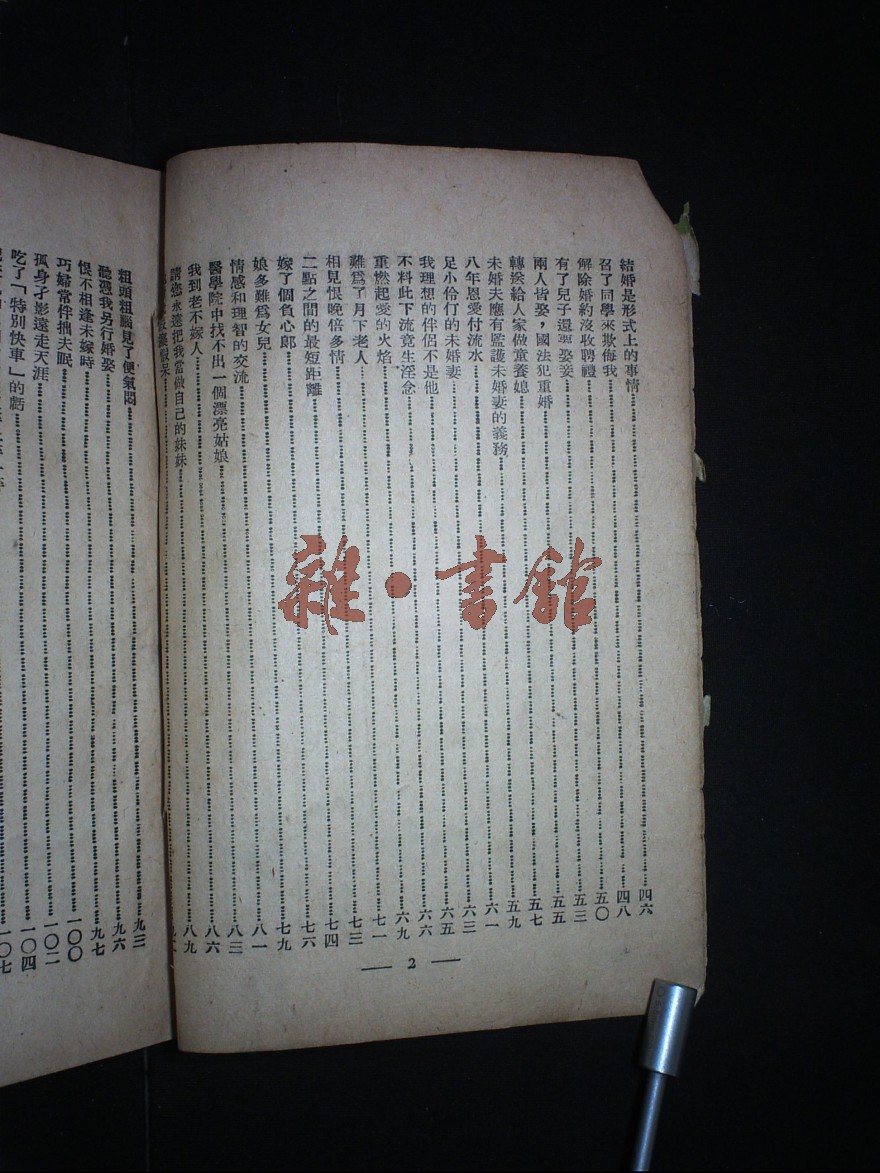 結婚是形式上的事情……四六
召了同學來欺侮我……四八
解除婚約沒收聘禮……五〇
有了兒子還要娶妾……五三
兩人皆娶，國法犯重婚……五五
轉送給人家做童養媳……五七
未婚夫應有監護未婚妻的義務……五九
八年恩愛付流水……六一
足小伶仃的未婚妻……六三
我理想的伴侶不是他……六五
不料此下流竟生淫念……六六
重燃起愛的火焰……六九
難為了月下老人……七一
相見恨晚倍多情……七三
二點之間的最短距離……七四
嫁了個負心郎……七六
娘多難為女兒……七九
情感和理智的交流……八一
醫學院中找不出一個漂亮姑娘……八三
我到老不嫁人……八六
請您永遠把我當做自己的妹妹……八九
2
粗頭粗腦見了便氣悶……九三
聽憑我另行婚娶……九六
恨不相逢未嫁時……九七
巧婦常伴拙夫眠……一〇〇
孤身孑影遠走天涯……一〇二
吃了「特別快車」的虧……一〇四
一〇七
雜·書館